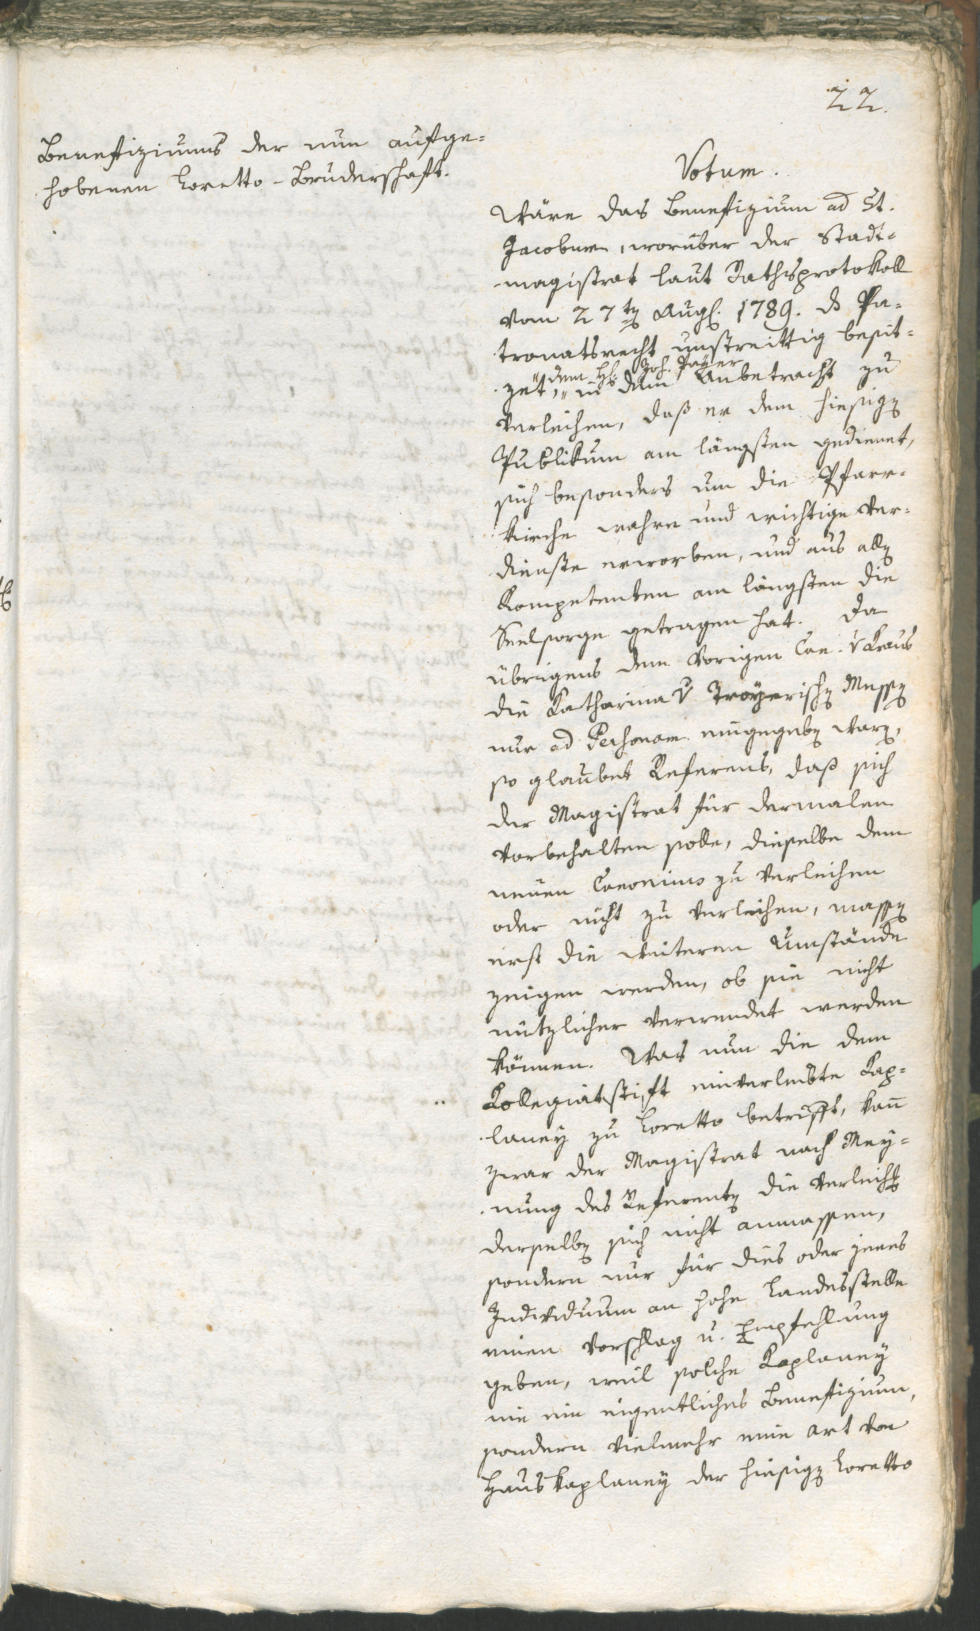 22.
Benefiziums der nun aufge-
hobenen Loretto-Bruderschaft.
Votum.
Wäre das Benefizium ad St.
Jacobum, worüber der Stadt-
magistrat laut Rathsprotokoll
vom 27ten Augs. 1789. d Pa-
tronatsrecht unstreittig besit-
zet, dem H. Joh. Payer
in dem Anbetracht zu
verleihen, daß er dem hiesigen
Publikum am längsten gedienet,
sich besonders um die Pfarr-
kirche wahre und wichtige Ver-
dienste erworben, und aus allen
Kompetenten am längsten die
Seelsorge getragen hat. Da
übrigens dem vorigen Can. v Kraus
die Katharina v Troyerischen Messen
nur ad Personam eingegeben waren,
so glaubet Referens, daß sich
der Magistrat für dermalen
vorbehalten solle, dieselbe dem
neuen Canonimo zu verleihen
oder nicht zu verleihen, massen
erst die weiteren Umstände
zeigen werden, ob sie nicht
nützlicher verwendet werden
können. Was nun die dem
Kollegiatstift einverleibte Kap-
laney zu Loretto betrifft, kann
zwar der Magistrat nach Mey-
nung des Referenten die Verleihung
derselben sich nicht anmassen,
sondern nur für dies oder jenes
Individuum an hohe Landesstelle
einen Vorschlag u. Empfehlung
geben, weil solche Kaplaney
nie ein eigentliches Benefizium,
sondern vielmehr eine Art von
Hauskaplaney der hiesigen Loretto